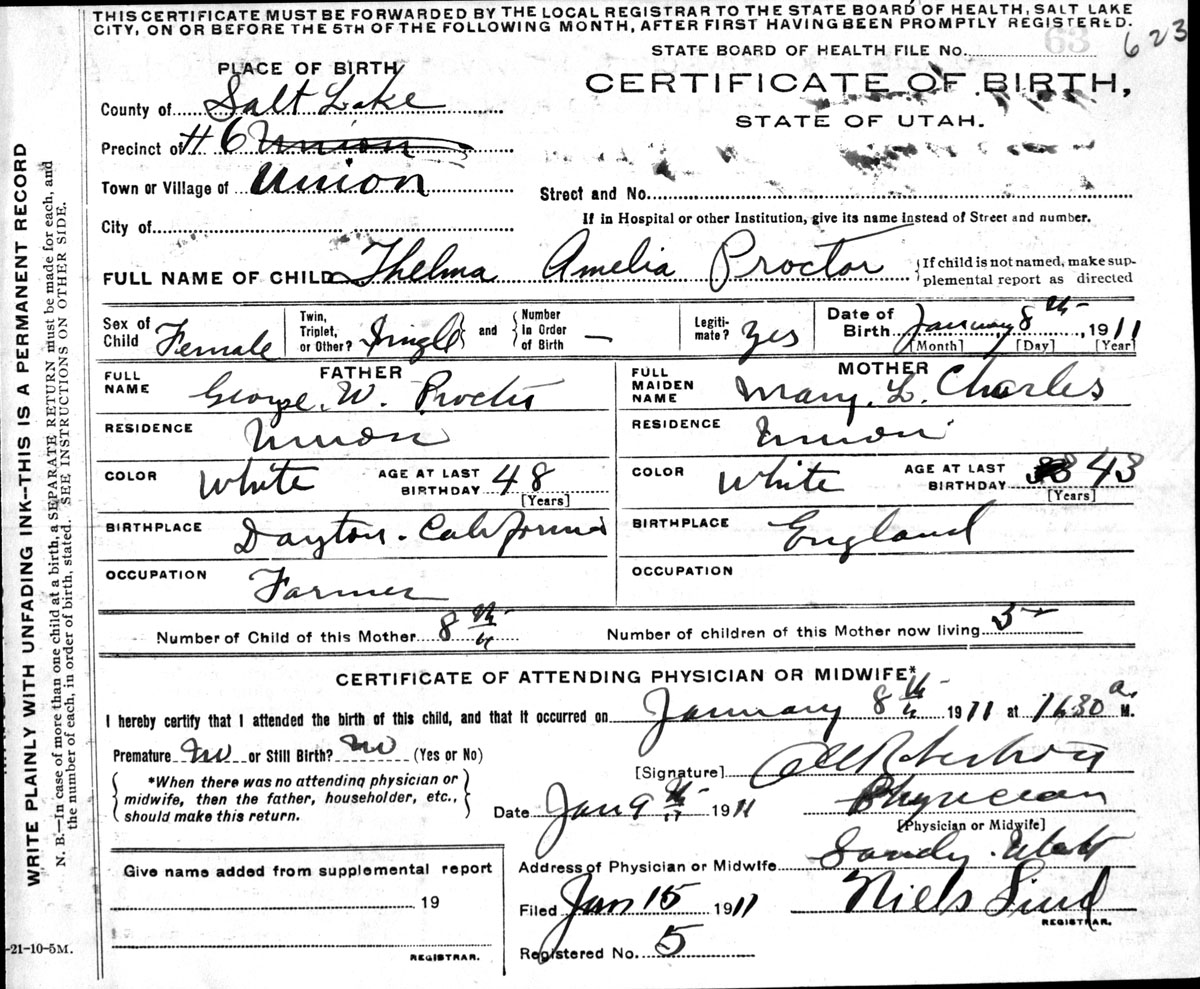 THIS CERTIFICATE MUST BE FORWARDED BY THE LOCAL REGISTRAR TO THE STATE BOARD OF HEALTH, SALT LAKE
CITY, ON OR BEFORE THE 5TH OF THE FOLLOWING MONTH, AFTER FIRST HAVING BEEN PROMPTLY REGISTERED.
STATE BOARD OF HEALTH FILE No. 63 623
PLACE OF BIRTH
CERTIFICATE OF BIRTH,
STATE OF UTAH.
County of Salt Lake
Precinct of #6 Union
Town or Village of Union
Street and No.
City of
If in Hospital or other Institution, give its name instead of Street and number.
FULL NAME OF CHILD Thelma Amelia Proctor
{If child is not named, make sup-
plemental report as directed
Sex of Child Female
Twin, Triplet, or Other? Single} and {Number In Order of Birth —
Legiti-mate? Yes
Date of Birth January 8th, 1911
[Month] [Day] [Year]
FATHER
FULL NAME George. W. Procter
RESIDENCE Union
COLOR White AGE AT LAST BIRTHDAY 48
[Years]
BIRTHPLACE Dayton. California
OCCUPATION Farmer
MOTHER
FULL MAIDEN NAME Mary. L. Charles
RESIDENCE Union
COLOR White AGE AT LAST BIRTHDAY 43
[Years]
BIRTHPLACE England
OCCUPATION
Number of Child of this Mother 8th Number of children of this Mother now living 5
CERTIFICATE OF ATTENDING PHYSICIAN OR MIDWIFE*
I hereby certify that I attended the birth of this child, and that it occurred on January 8th 1911 at a. M.
Premature no or Still Birth? no (Yes or No)
[Signature] Robertson
{*When there was no attending physician or
midwife, then the father, householder, etc.,
should make this return.}
Date Jan 9th 1911 Physician
[Physician or Midwife]
Address of Physician or Midwife Sandy. Utah
Give name added from supplemental report
19
REGISTRAR.
Filed Jan 15 1911 Niels Lind
REGISTRAR.
Registered No. 5
-21-10-5M.
WRITE PLAINLY WITH UNFADING INK--THIS IS A PERMANENT RECORD
N. B.—In case of more than one child at a birth, a SEPARATE RETURN must be made for each, and
the number of each, in order of birth, stated. SEE INSTRUCTIONS ON OTHER SIDE.